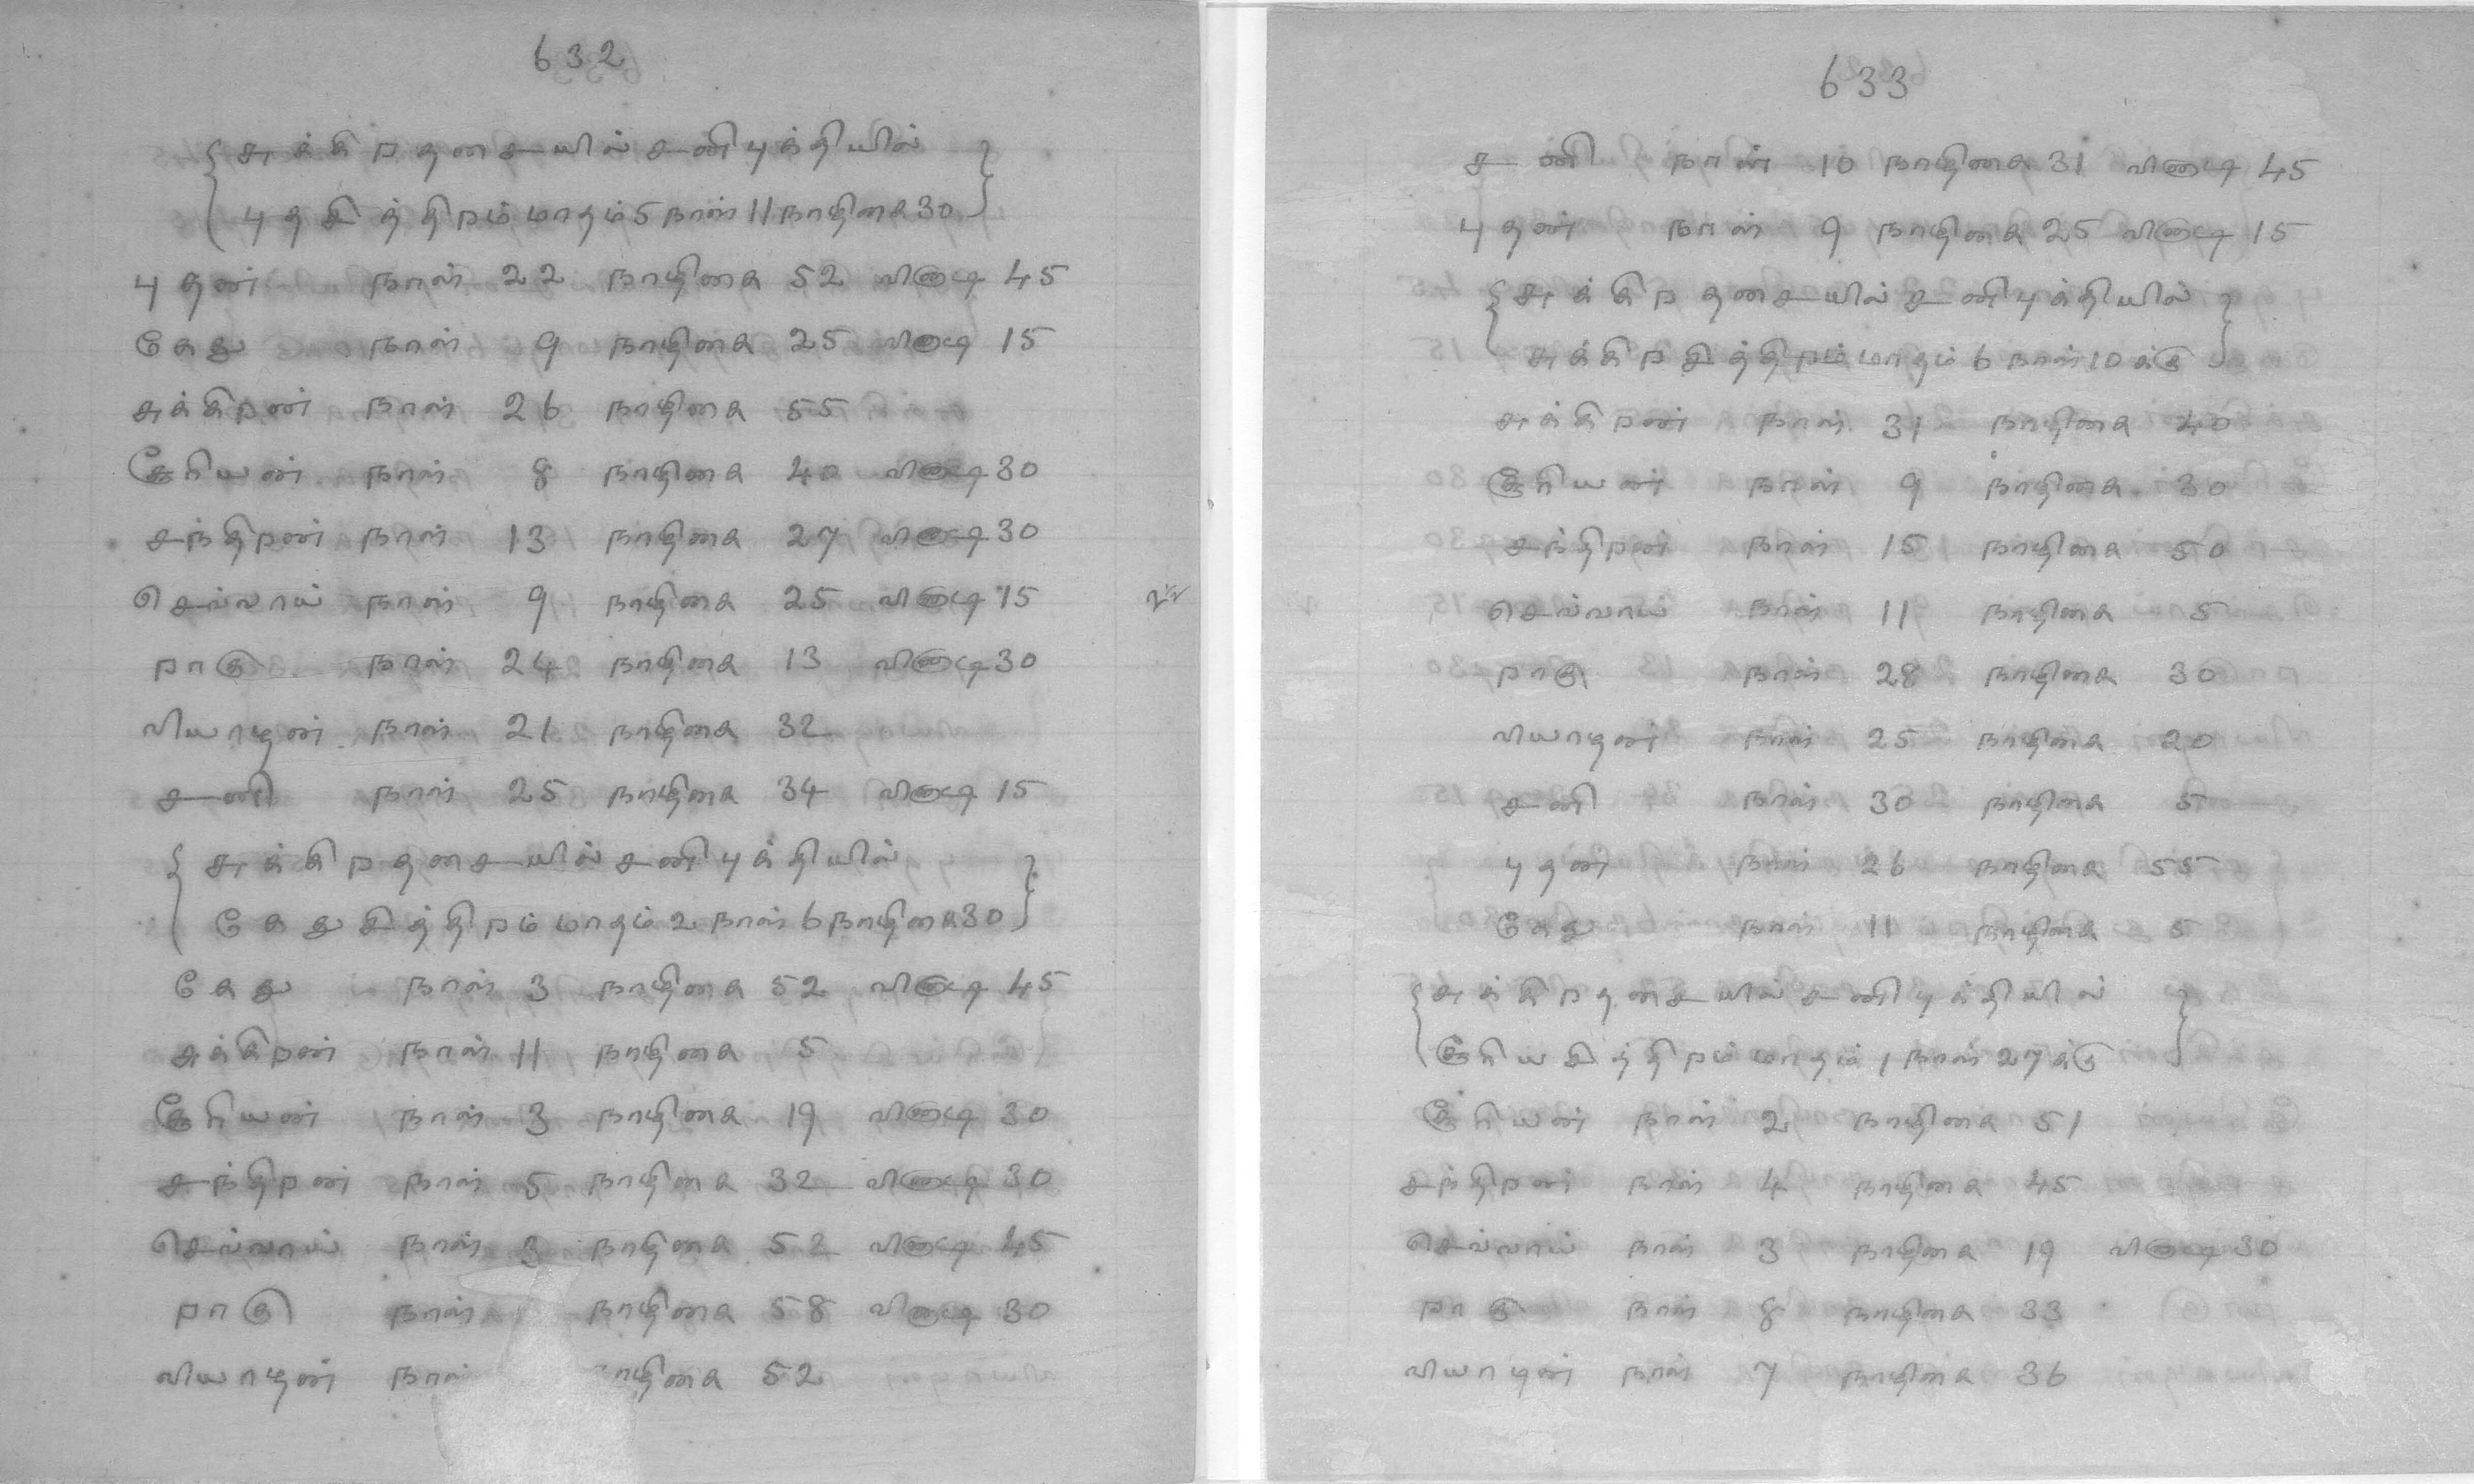 632
சுக்கிறதசையில் சனிபுக்தியில்
புதசித்திறம் மாதம் 5 நாள் 11 நாழிகை 30
புதன் நாள் 22 நாழிகை 52 விநாடி 45
கேது நாள் 9 நாழிகை 25 விநாடி 15
சுக்கிறன் நாள் 26 நாழிகை 55
சூரியன் நாள் 8 நாழிகை 40 விநாடி 30
சந்திறன் நாள் 13 நாழிகை 27 விநாடி 30
செவ்வாய் நாள் 9 நாழிகை 25 விநாடி 15
றாகு நாள் 24 நாழிகை 13 விநாடி 30
வியாழன் நாள் 21 நாழிகை 32
சனி நாள் 25 நாழிகை 34 விநாடி 15
சுக்கிறதசையில் சனிபுக்தியில்
கேதுசித்திறம் மாதம் 2 நாள் 6 நாழிகை 30
கேது நாள் 3 நாழிகை 52 விநாடி 45
சுக்கிறன் நாள் 11 நாழிகை 5
சூரியன் நாள் 3 நாழிகை 19 விநாடி 30
சந்திறன் நாள் 5 நாழிகை 32 விநாடி 30
செவ்வாய் நாள் 3 நாழிகை 52 விநாடி 45
றாகு நாள் நாழிகை 58 விநாடி 30
வியாழன் நாள் நாழிகை 52
633
சனி நாள் 10 நாழிகை 31 விநாடி 45
புதன் நாள் 9 நாழிகை 25 விநாடி 15
சுக்கிறதசையில் சனிபுக்தியில்
சுக்கிறசித்திறம் மாதம் 6 நாள் 10க்கு
சுக்கிறன் நாள் 31 நாழிகை 40
சூரியன் நாள் 9 நாழிகை 30
சந்திறன் நாள் 15 நாழிகை 50
செவ்வாய் நாள் 11 நாழிகை 5
றாகு நாள் 28 நாழிகை 30
வியாழன் நாள் 25 நாழிகை 20
சனி நாள் 30 நாழிகை 5
புதன் நாள் 26 நாழிகை 55
கேது நாள் 11 நாழிகை 5
சுக்கிறதசையில் சனிபுக்தியில்
சூரியசித்திறம் மாதம் 1 நாள் 27க்கு
சூரியன் நாள் 2 நாழிகை 51
சந்திறன் நாள் 4 நாழிகை 45
செவ்வாய் நாள் 3 நாழிகை 19 விநாடி 30
றாகு நாள் 8 நாழிகை 33
வியாழன் நாள் 7 நாழிகை 36